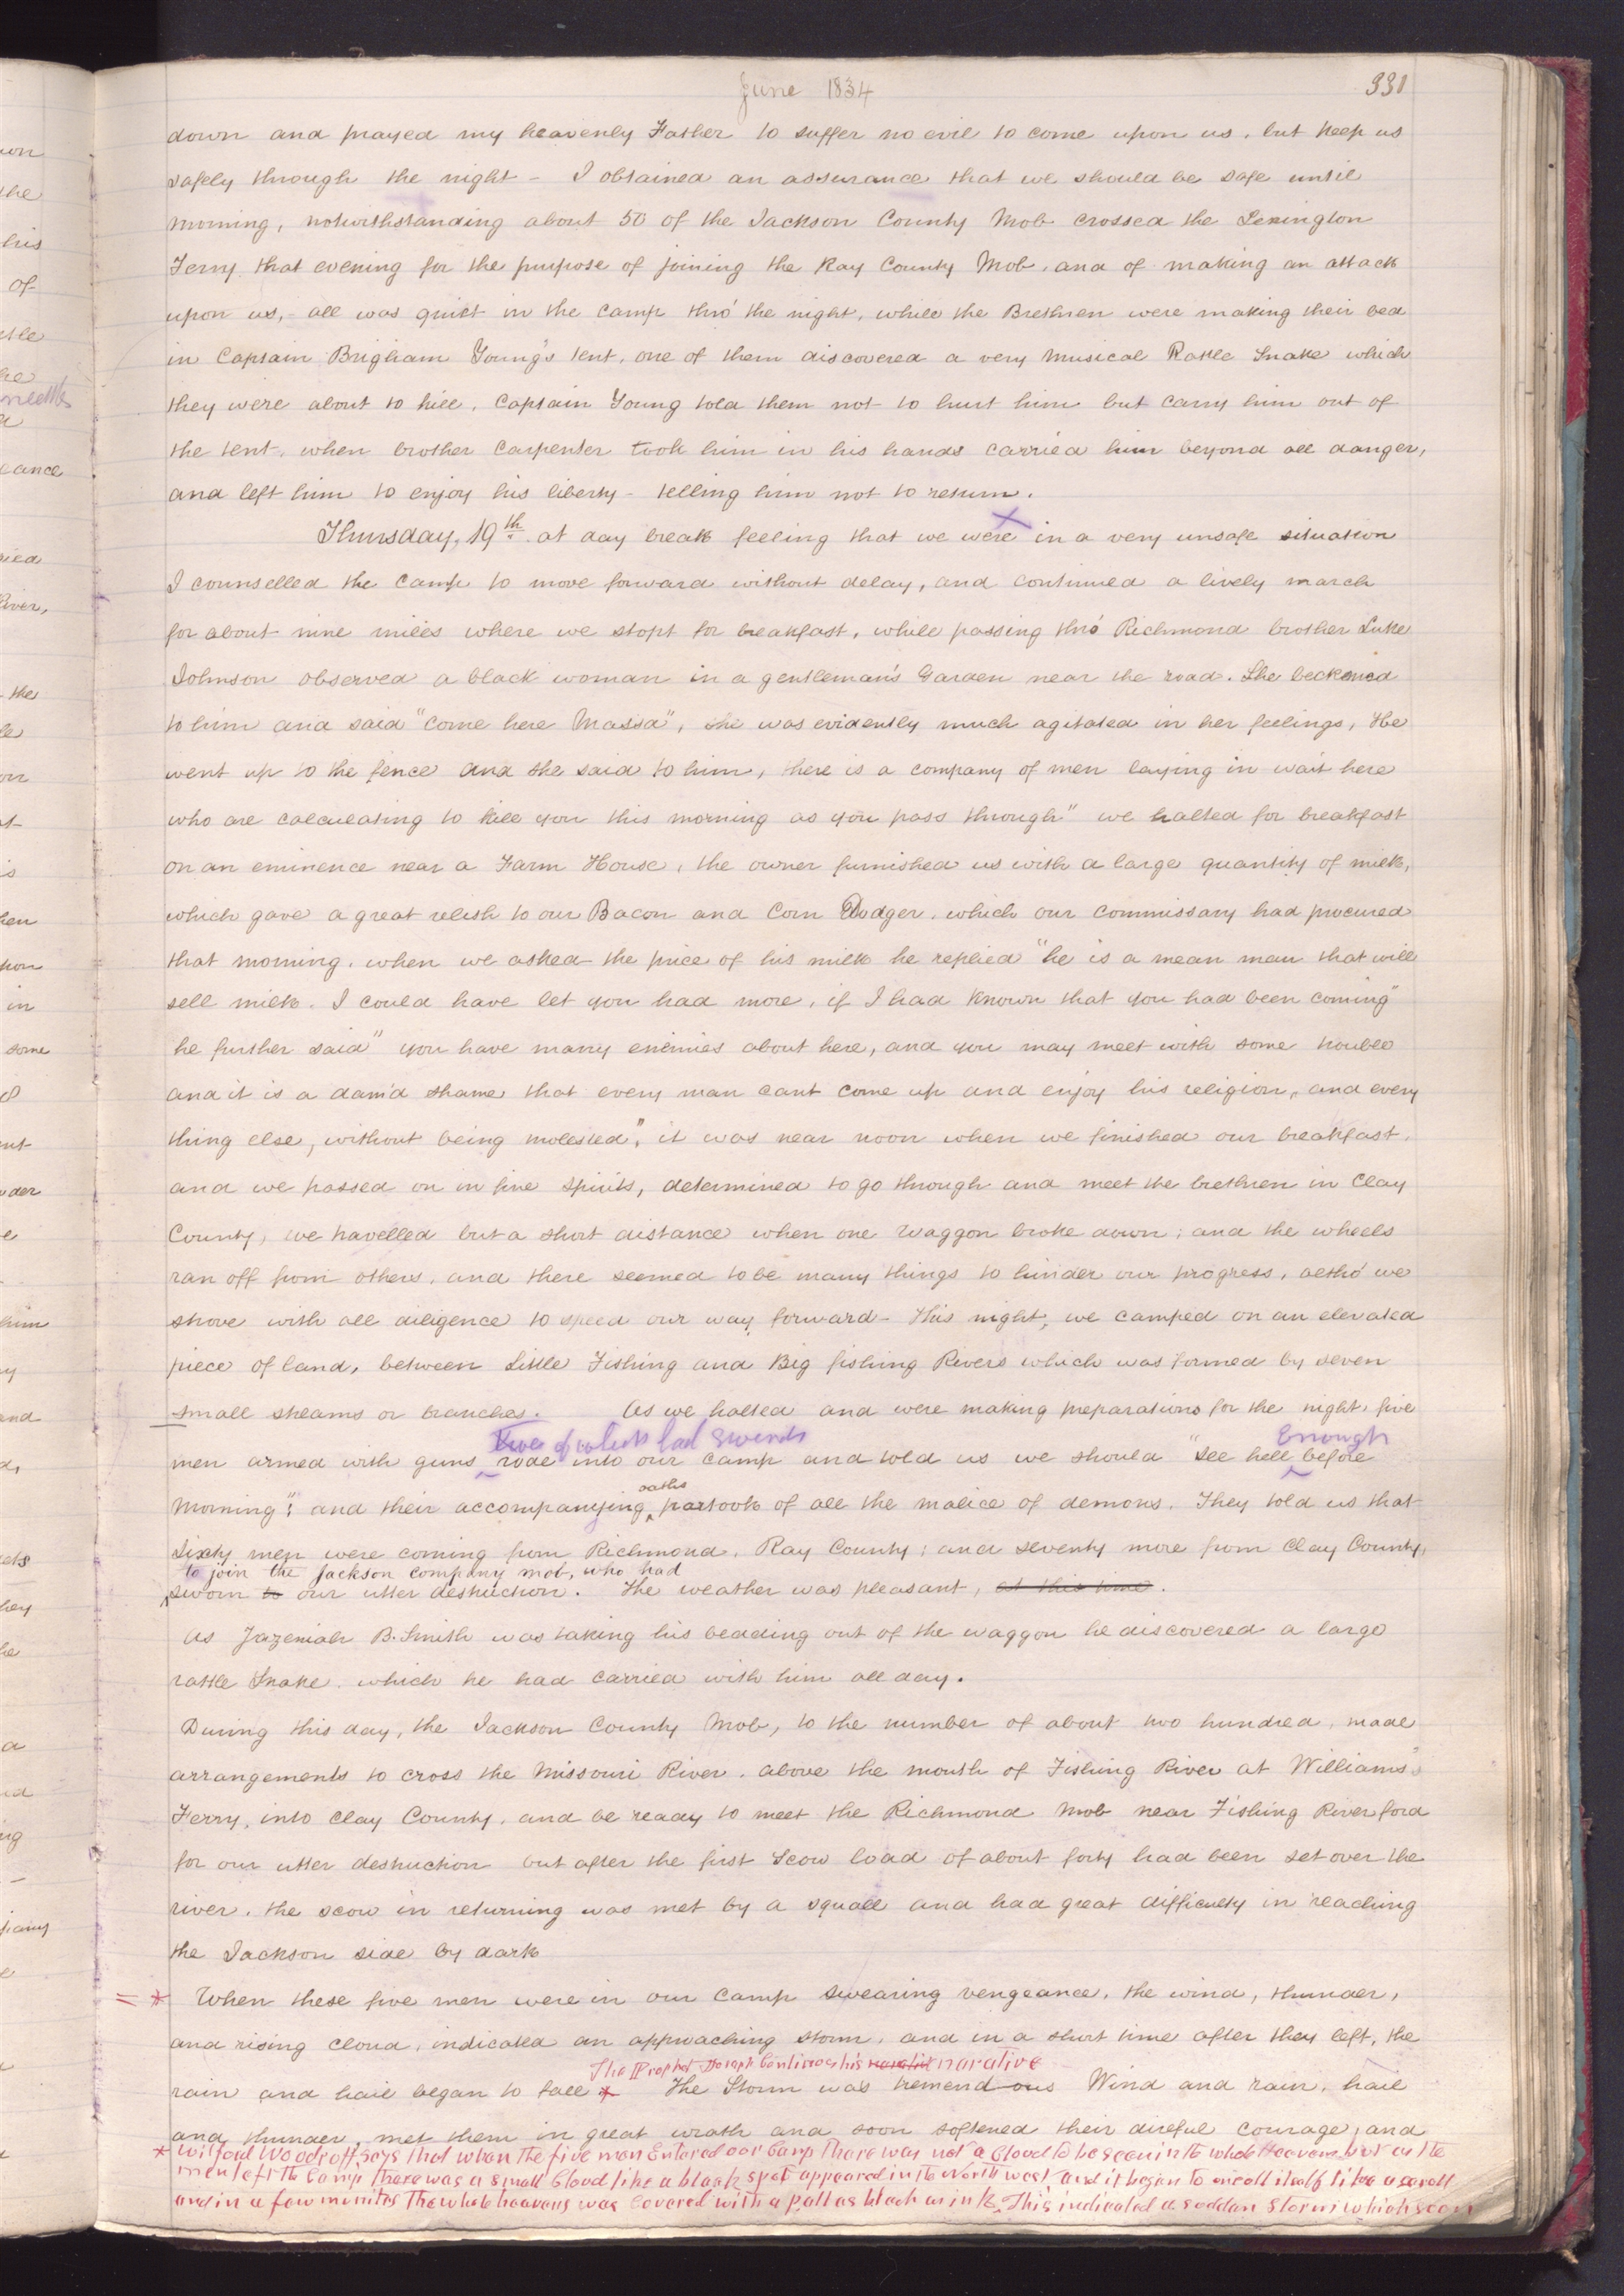 June 1834
331
down and prayed my heavenly Father to suffer no evil to come upon us, but keep us
safely through the night - I obtained an assurance that we should be safe until
morning, notwithstanding about 50 of the Jackson County Mob crossed the Lexington
Ferry that evening for the purpose of joining the Ray County Mob, and of making an attack
upon us, - all was quiet in the camp thro' the night, while the Brethren were making their bed
in Captain Brigham Young's tent, one of them discovered a very musical Rattle Snake which
they were about to kill, Captain Young told them not to hurt him but carry him out of
the tent, when brother Carpenter took him in his hands carried him beyond all danger,
and left him to enjoy his liberty - telling him not to return.
Thursday, 19th at day break feeling that we were in a very unsafe situation
I counselled the camp to move forward without delay, and continued a lively march
for about nine miles where we stopt for breakfast, while passing thro' Richmond brother Luke
Johnson observed a black woman in a gentleman's Garden near the road. She beckoned
to him and said "come here Massa", she was evidently much agitated in her feelings, He
went up to the fence and she said to him, there is a company of men laying in wait here
who are calculating to kill you this morning as you pass through" we halted for breakfast
on an eminence near a Farm House, the owner furnished us with a large quantity of milk,
which gave a great relish to our Bacon and Corn Dodger, which our commissary had procured
that morning, when we asked the price of his milk he replied "he is a mean man that will
sell milk. I could have let you had more, if I had known that you had been coming"
he further said "you have many enemies about here, and you may meet with some trouble
and it is a dam'd shame that every man cant come up and enjoy his religion, and every
thing else, without being molested", it was near noon when we finished our breakfast,
and we passed on in fine spirits, determined to go through and meet the brethren in Clay
County, we travelled but a short distance when one waggon broke down; and the wheels
ran off from others, and there seemed to be many things to hinder our progress, altho' we
strove with all diligence to speed our way forward - This night, we camped on an elevated
piece of land, between Little Fishing and Big fishing Rivers which was formed by seven
small streams or branches. As we halted and were making preparations for the night, five
two of which had Swords Enough
men armed with guns rode into our camp and told us we should "see hell before
oaths
morning"; and their accompanying partook of all the malice of demons. They told us that
Sixty men were coming from Richmond, Ray County; and seventy more from Clay County,
to join the Jackson company mob, who had
sworn to our utter destruction. The weather was pleasant, at this time.
As Jazeniah B. Smith was taking his bedding out of the waggon he discovered a large
rattle Snake, which he had carried with him all day.
During this day, the Jackson County Mob, to the number of about two hundred, made
arrangements to cross the Missouri River, above the mouth of Fishing River at Williams's
Ferry, into Clay County, and be ready to meet the Richmond mob near Fishing River ford
for our utter destruction but after the first Scow load of about forty had been set over the
river, the scow in returning was met by a squall and had great difficulty in reaching
the Jackson side by dark
= * When these five men were in our camp swearing vengeance, the wind, thunder,
and rising cloud, indicated an approaching storm, and in a short time after they left, the
The Prophet Joseph Continues his narative
rain and hail began to fall * The Storm was tremendous Wind and rain, hail
and thunder, met them in great wrath and soon softened their direful courage, and
* Wilford Woodruff Says that when the five men Entered our Camp there was not a Cloud to be seen in the whole Heavens but as the
men left the Camp there was a small Cloud like a black spot appeared in the North west and it began to unroll itself like a scroll
and in a few minits the whole heavens was Covered with a pall as black as ink. This indicated a suddan Storm which soon